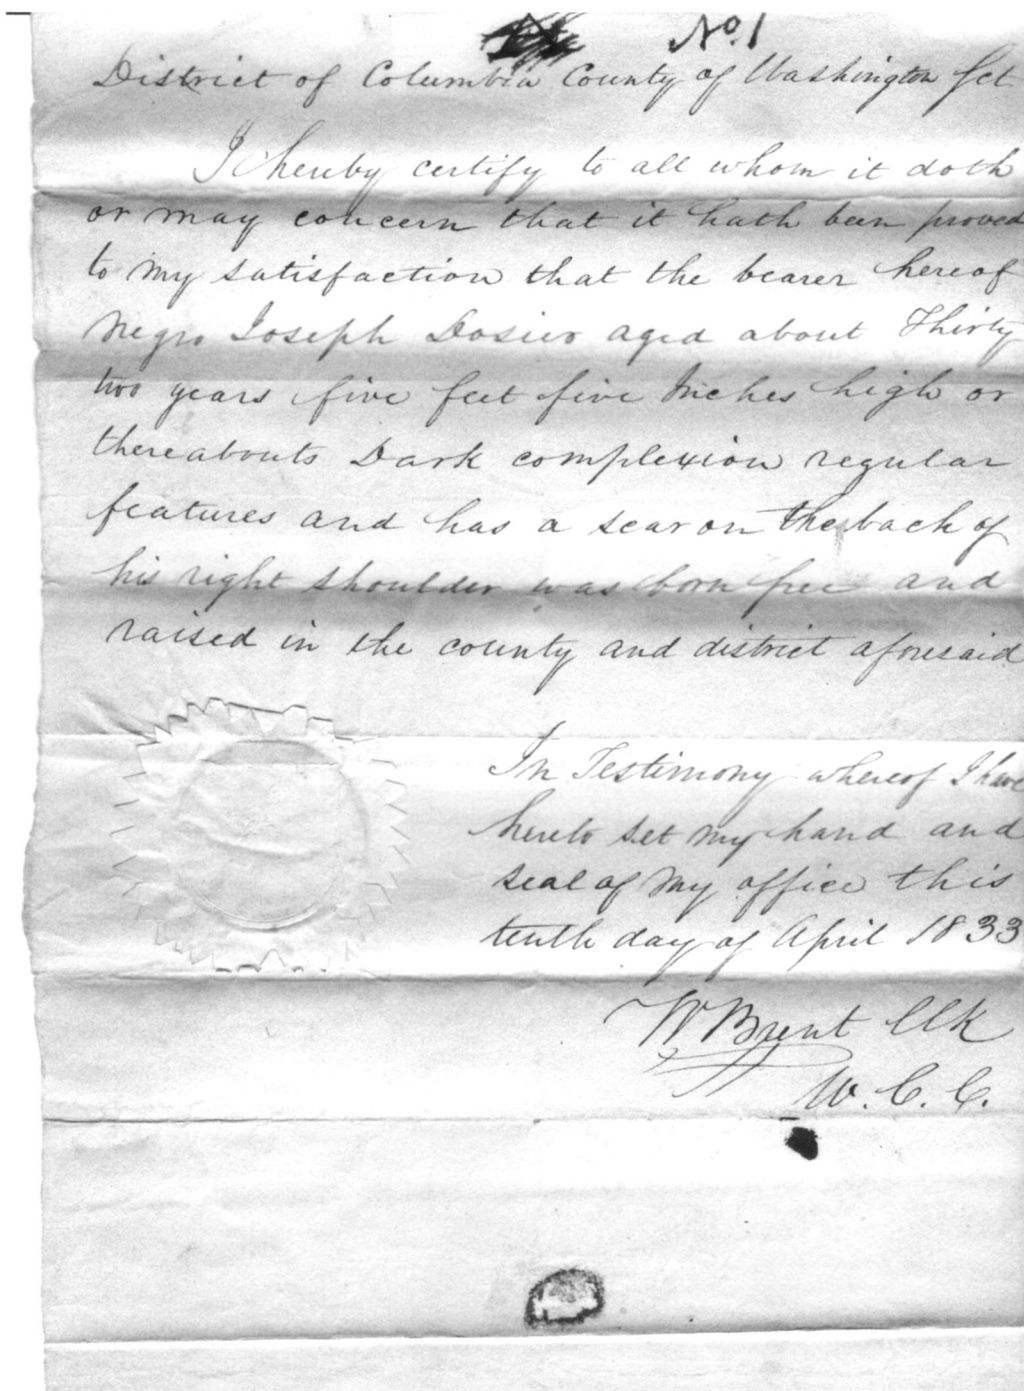 No. 1
District of Columbia County of Washington Sct
I hereby certify to all whom it doth
or may concern that it hath been proved
to my satisfaction that the bearer hereof
Negro Joseph Dosier aged about Thirty
two years five feet five Inches high or
thereabouts Dark complexion regular
features and has a scar on the back of
his right shoulder was born free and
raised in the county and district aforesaid
In Testimony whereof I have
hereto set my hand and
seal of my office this
tenth day of April 1833
W Brent Clk
W. C. C.